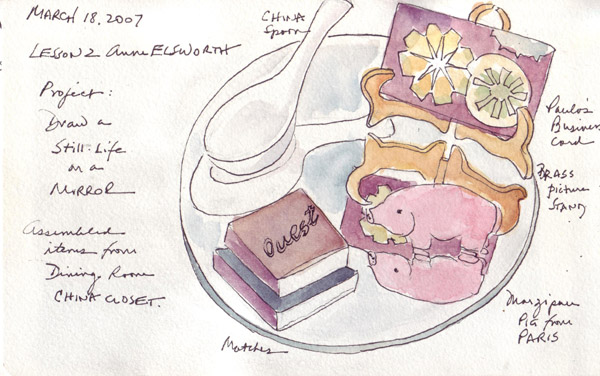 MARCH 18, 2007
LESSON 2 Anne ELSWORTH
Project:
Draw a
Still-Life
on a
MIRROR
Assembled
items from
Dining Room
CHINA CLOSET.
CHINA
Spoon
Paulo's
Business
Card
BRASS
picture
STAND
Quest
Marzipan
PIG from
PARIS
Matches